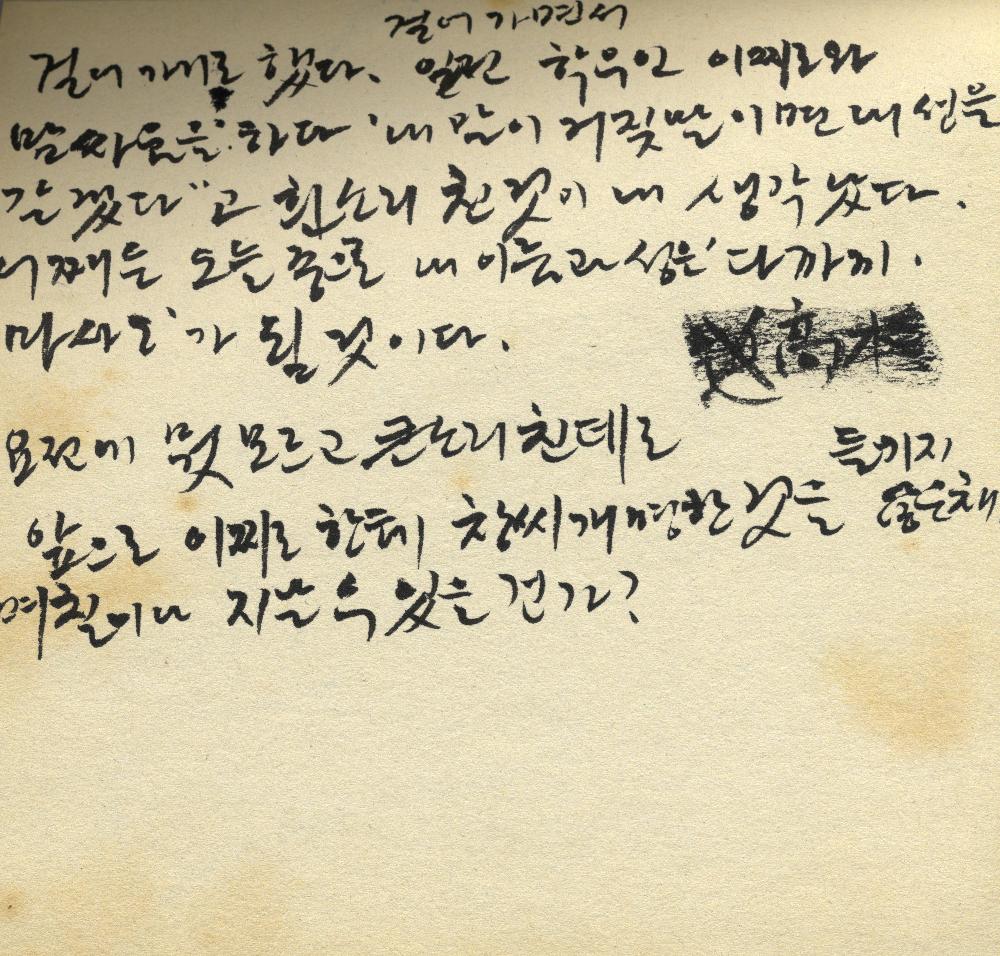 걸어 가면서
걸어 가기로 했다. 일전 학우인 이찌로와
말싸움을 하다 '내 말이 거짓말이면 내 성을
갈겠다"고 흰소리 친 것이 내 생각났다.
어쨌든 오늘 중으로 내 이름과 성은 '다까끼.
마사오'가 될 것이다.
高木
요전에 뭣 모르고 큰소리 친데로
들키지
앞으로 이찌로 한테 창씨개명한 것을 않은채
며칠이나 지날 수 있을 건가?